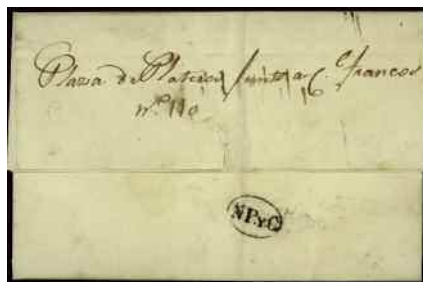 Plaza de Platerias Junto a C. Francos
nº 110
NPyC